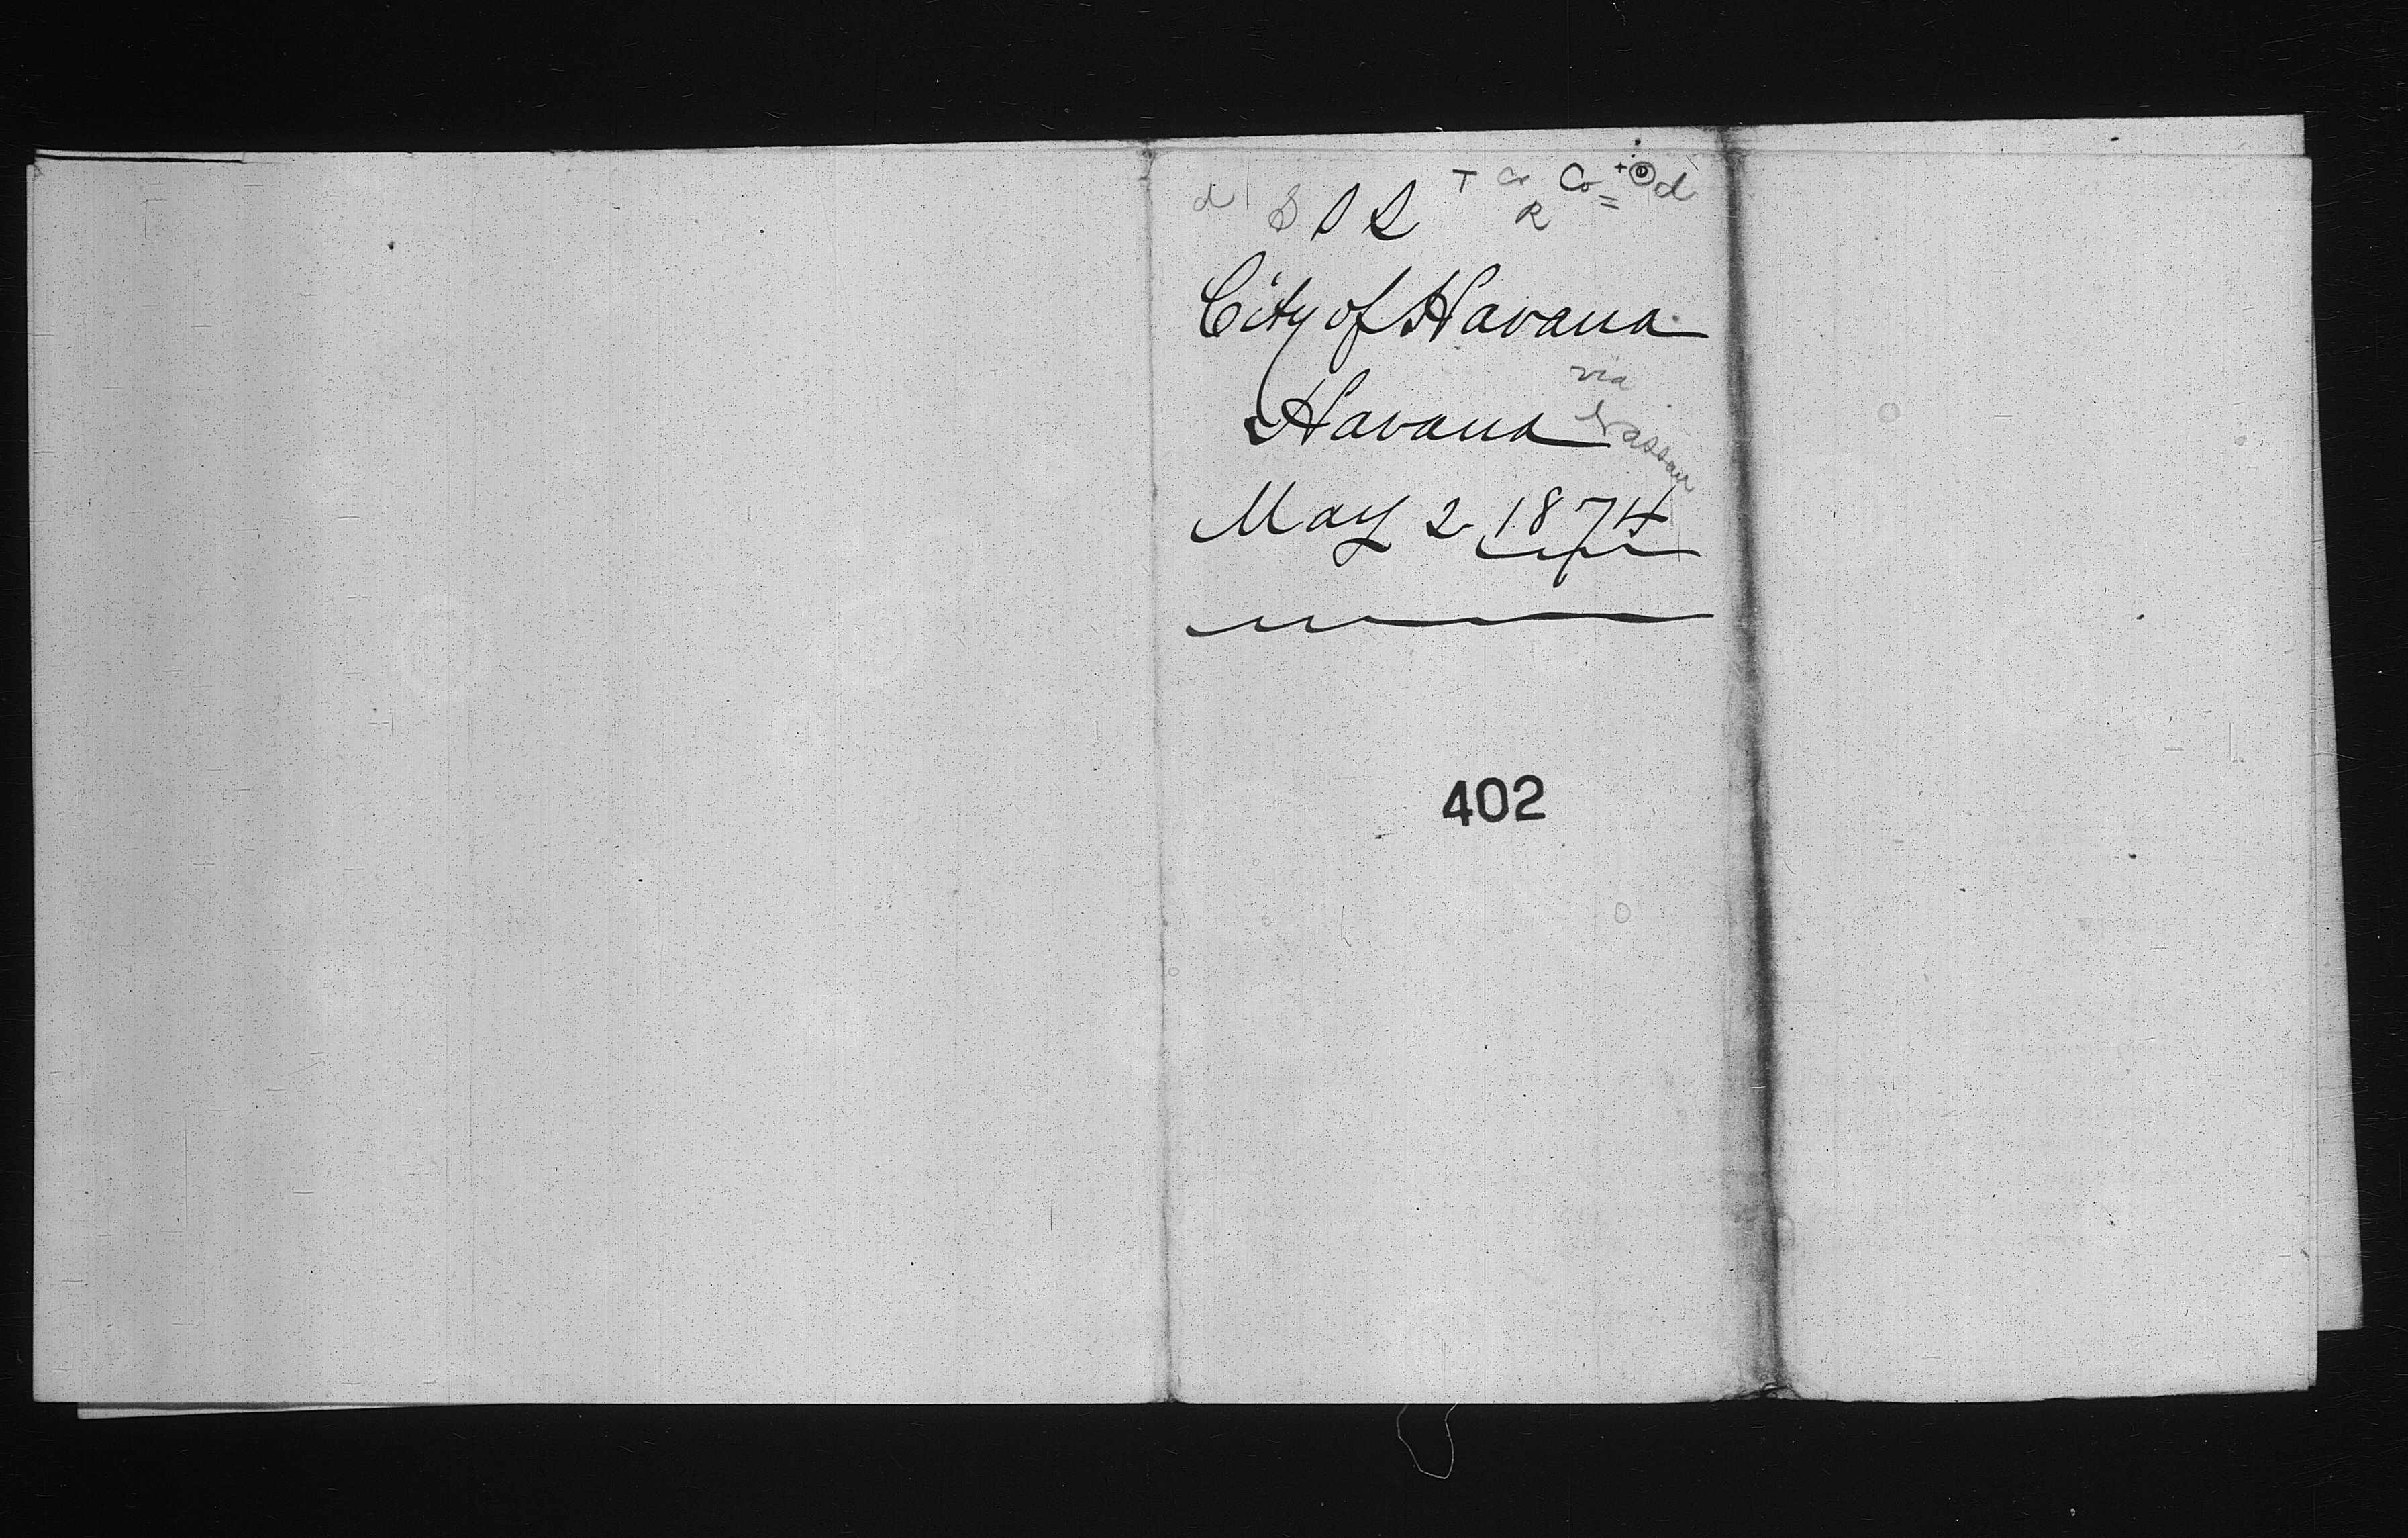 d T Co Co + d
R =
S S
City of Havana
via
Havana Nassau
May 2 1874
402